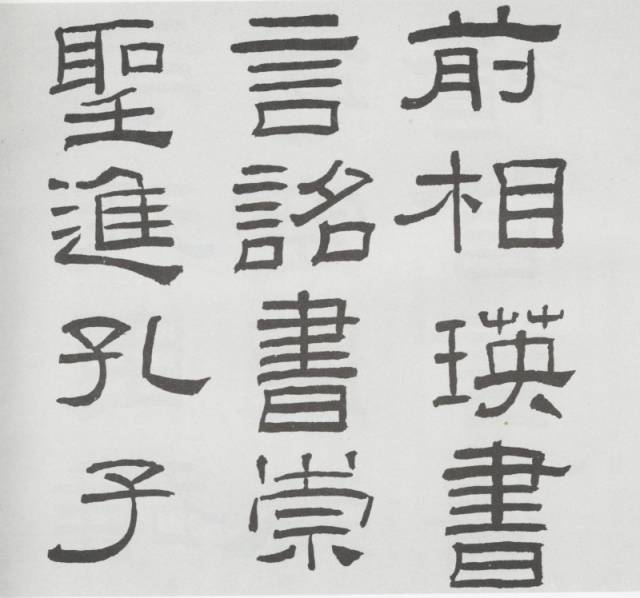 前相瑛書
言詺書崇
聖進孔子